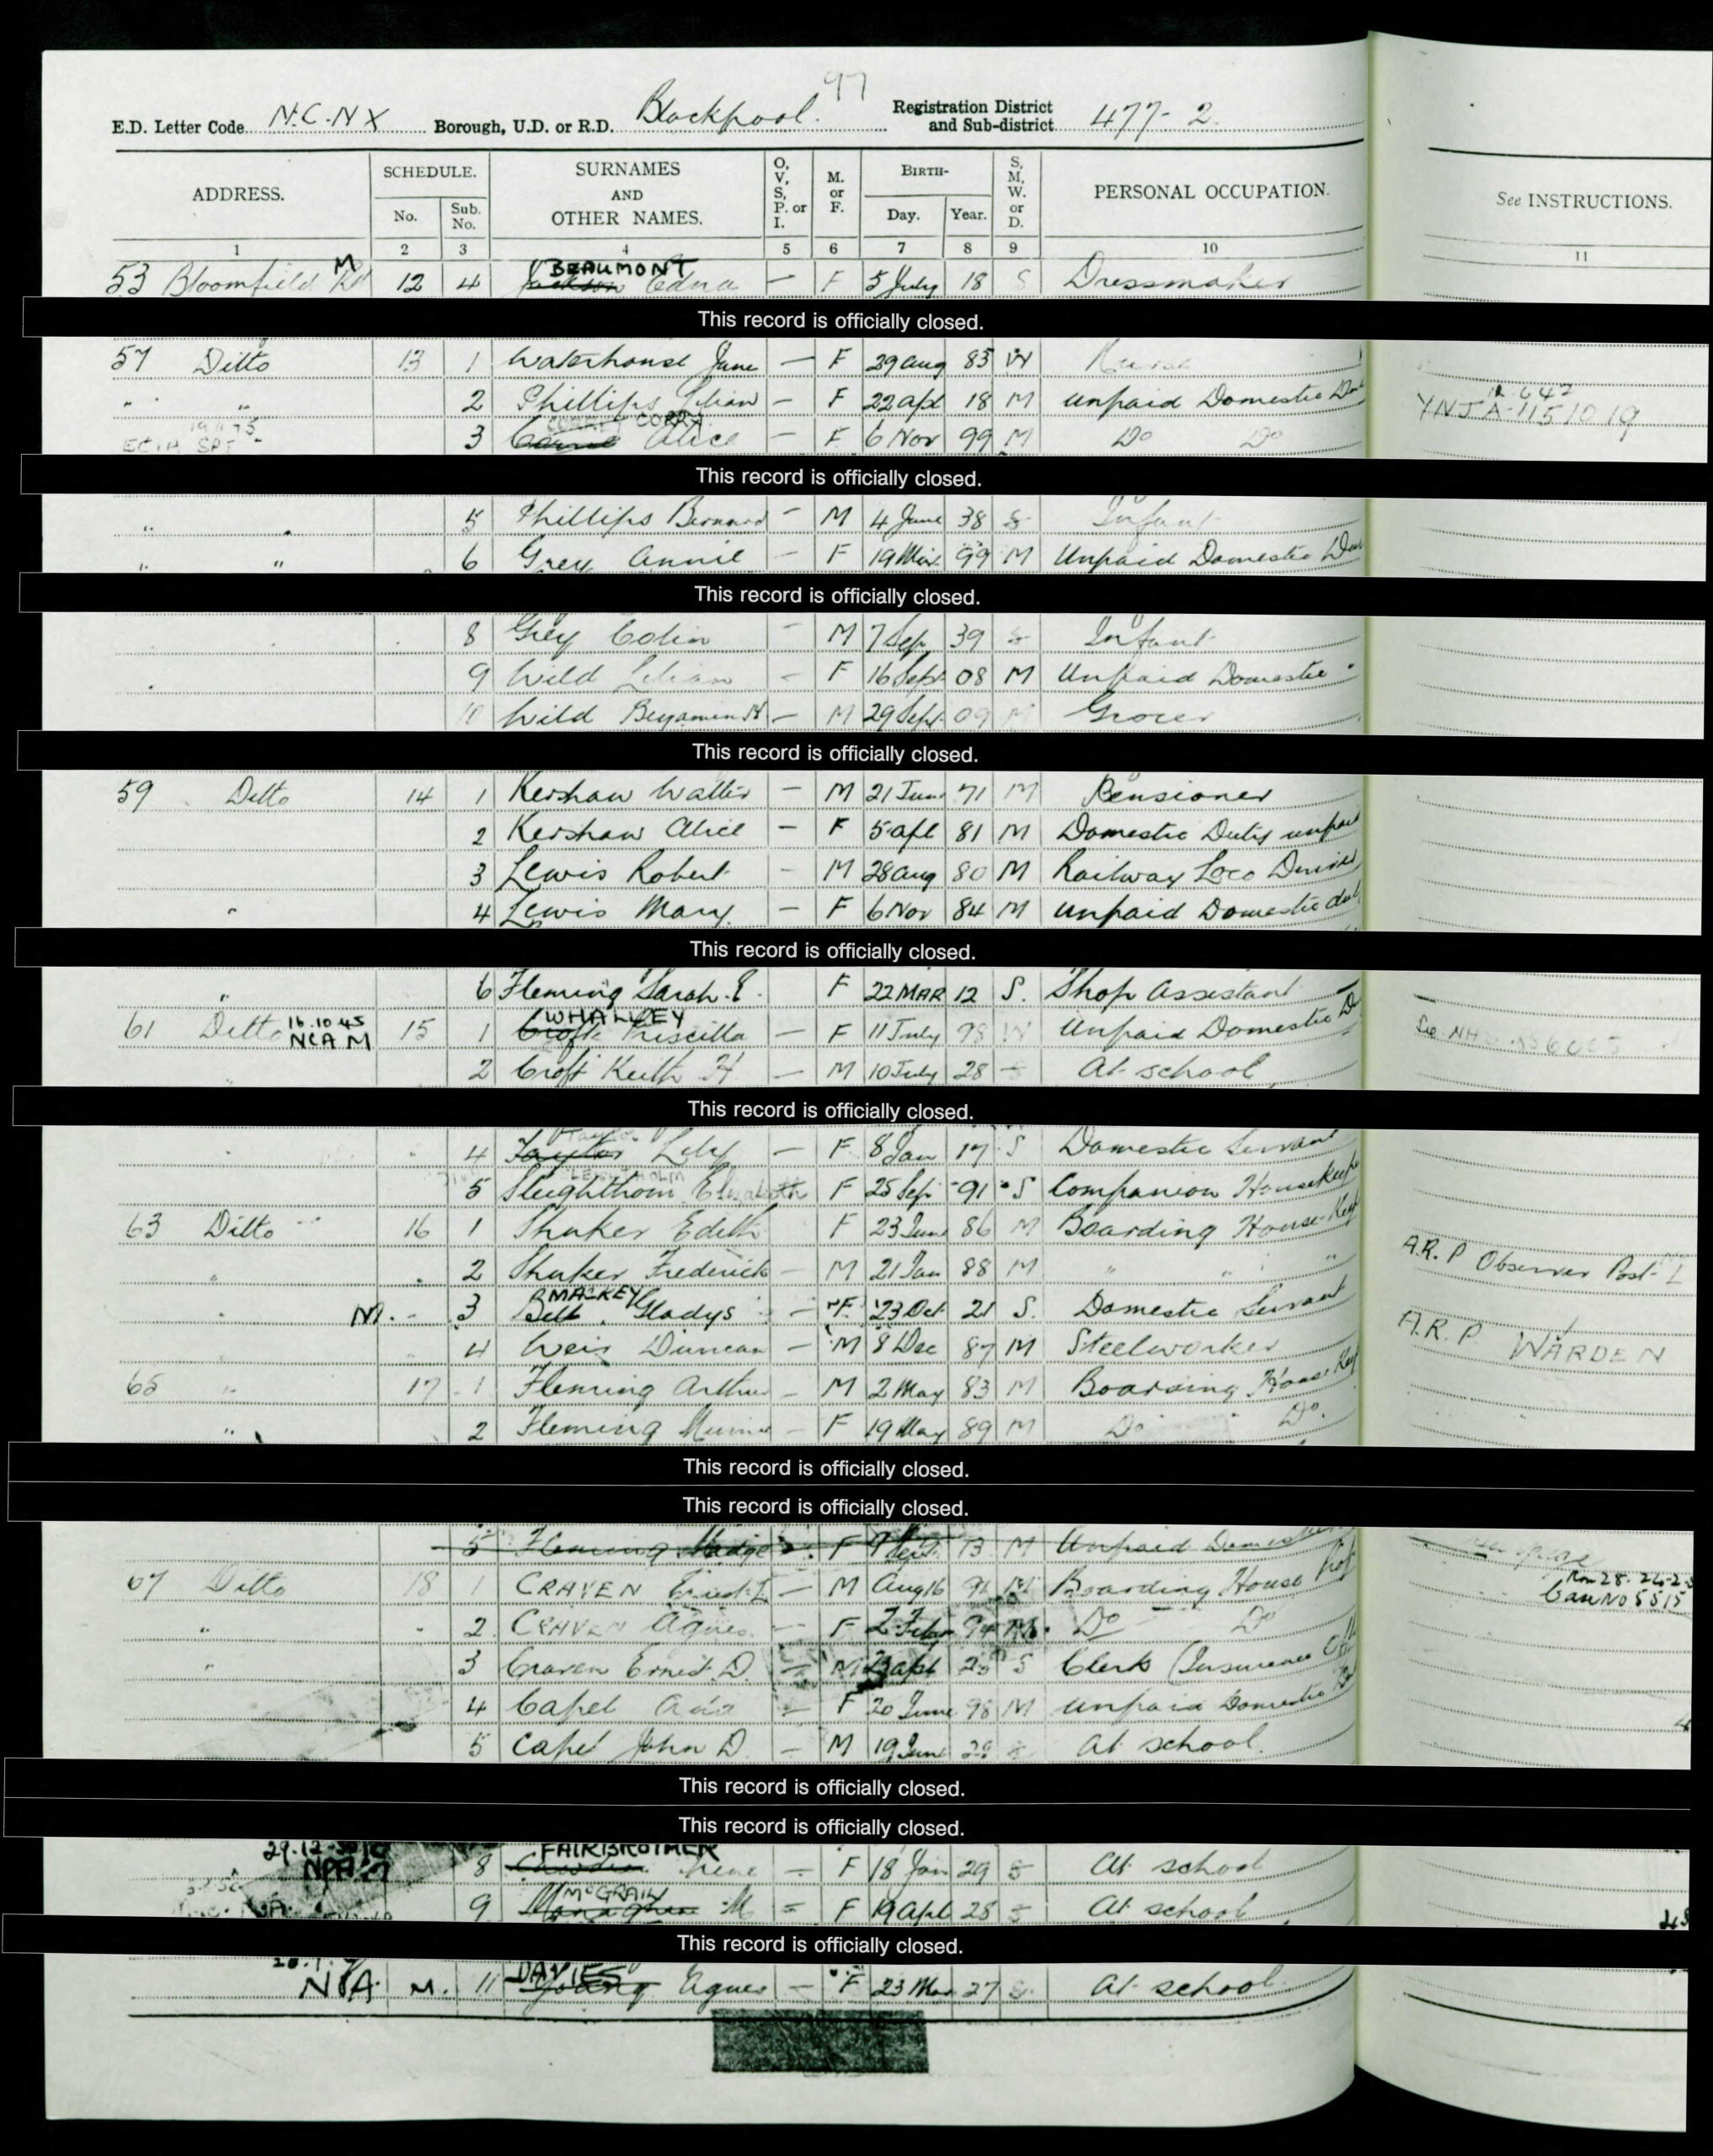 97
E.D. Letter Code N.C.NX Borough, U.D. or R.D. Blackpool. Registration District and Sub-district 477-2
ADDRESS. SCHEDULE. No. Sub. No. SURNAMES AND OTHER NAMES. O, V, S, P. or I. M. or F. BIRTH- Day. Year. S, M, W. or D. PERSONAL OCCUPATION. See INSTRUCTIONS.
1 2 3 4 5 6 7 8 9 10 11
M BEAUMONT
53 Bloomfield Rd 12 4 Jackson Edna — F 5 July 18 S Dressmaker
This record is officially closed.
57 Ditto 13 1 Waterhouse Jane — F 29 Aug 83 W Nurse
" " 2 Phillips Lilian — F 22 Apl 18 M Unpaid Domestic YNJA
3 Alice — F 6 Nov 99 M Do Do
This record is officially closed.
" " 5 Phillips Bernard — M 4 June 38 S Infant
" " 6 Grey Annie — F 19 Mar 99 M Unpaid Domestic
This record is officially closed.
8 Grey Colin — M 7 Sep 39 S Infant
9 Wild Lilian — F 16 Sept 08 M Unpaid Domestic "
10 Wild Benjamin H — M 29 Sept 09 M Grocer
This record is officially closed.
59 Ditto 14 1 Kershaw Walter — M 21 June 71 M Pensioner
2 Kershaw Alice — F 5 Apl 81 M Domestic Duties unpaid
3 Lewis Robert — M 28 Aug 80 M Railway Loco Driver
" 4 Lewis Mary — F 6 Nov 84 M Unpaid Domestic
This record is officially closed.
" 6 Fleming Sarah. E. F 22 MAR 12 S. Shop Assistant
16.10.45 WHALLEY
61 Ditto NCA M 15 1 Croft Priscilla — F 11 July 98 W Unpaid Domestic D
2 Croft Keith H — M 10 July 28 S At school
This record is officially closed.
4 Taylor Lily — F 8 Jan 17 S Domestic Servant
5 Sleightholm Elizabeth F 25 Sep 91 S Companion Housekeeper
63 Ditto 16 1 Shaker Edith F 23 June 86 M Boarding House-Keep
" 2 Shaker Frederick — M 21 Jan 88 M " " " A.R.P Observer Post
MACKEY
M. 3 Bell Gladys — F 23 Oct 21 S. Domestic Servant
4 Weir Duncan — M 8 Dec 87 M Steelworker A.R.P. WARDEN
65 " 17 1 Fleming Arthur — M 2 May 83 M Boarding House Keep
" 2 Fleming — F 19 May 89 M Do Do.
This record is officially closed.
This record is officially closed.
5 Fleming Madge F 13 M Unpaid
67 Ditto 18 1 CRAVEN Ernest — M Aug 16 M Boarding House
" 2 CRAVEN Agnes — F 2 Feb 94 M. Do Do
" 3 Craven Ernest D. — M Apl S Clerk (Insurance
4 Capel Ada — F 20 June 98 M Unpaid Domestic
5 Capel John D. — M 19 June S At school.
This record is officially closed.
This record is officially closed.
FAIRBROTHER
8 Irene — F 18 Jan 29 S At school
McGRAIL
9 Monaghan M — F 19 Apl 28 S At school
This record is officially closed.
DAVIES
NCA M. 11 Young Agnes — F 23 Mar 27 S. At school